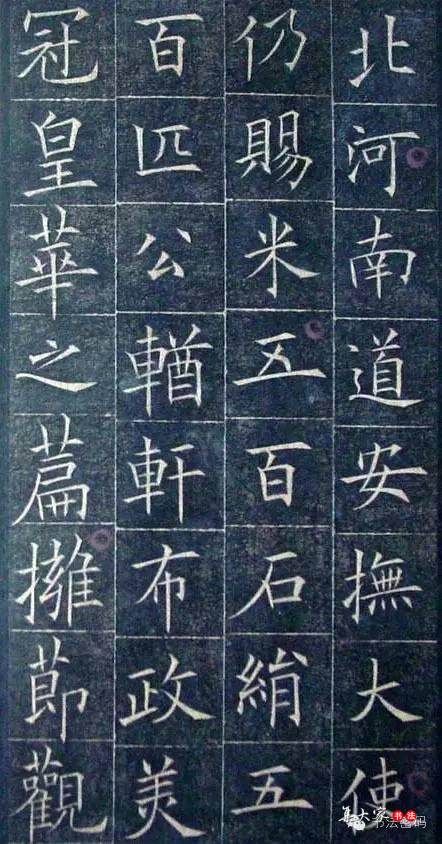 北河南道安撫大使
仍賜米五百石絹五
百匹公輶軒布政美
冠皇華之篇擁節觀
集大家书法
书法密码